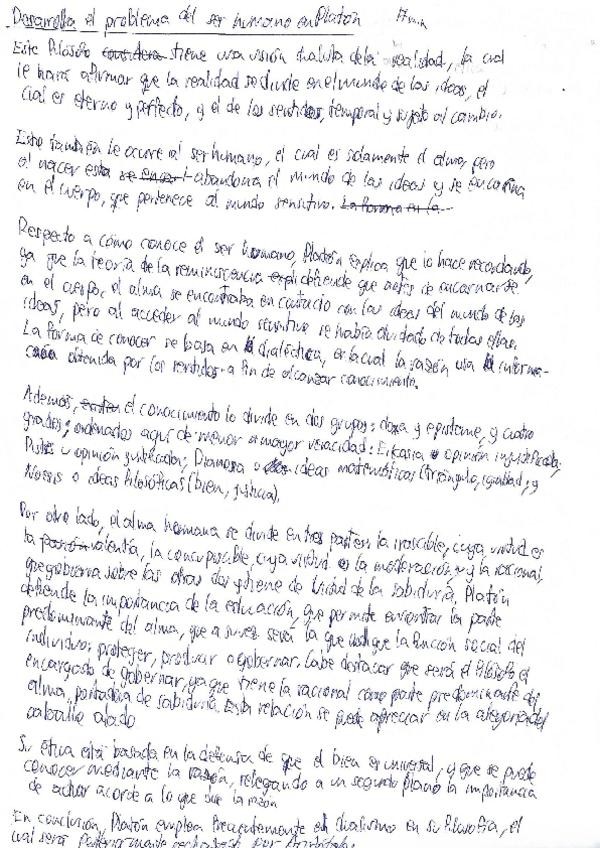 Desarrolla el problema del ser humano en Platón 17 min
Este filósofo considera tiene una visión dualista de la realidad, la cual
le hará afirmar que la realidad se divide en el mundo de las ideas, el
cual es eterno y perfecto, y el de los sentidos, temporal y sujeto al cambio.
Esto también le ocurre al ser humano, el cual es solamente el alma, pero
al nacer esta abandona el mundo de las ideas y se encarna
en el cuerpo, que pertenece al mundo sensitivo. La forma en la
Respecto a cómo conoce el ser humano, Platón explica que lo hace recordando,
ya que la teoría de la reminiscencia defiende que antes de encarnarse
en el cuerpo, el alma se encontraba en contacto con las ideas del mundo de las
ideas, pero al acceder al mundo sensitivo se había olvidado de todas ellas.
La forma de conocer se basa en la dialéctica, en la cual la razón usa la informa-
ción obtenida por los sentidos a fin de alcanzar conocimiento.
Además, el conocimiento lo divide en dos grupos: doxa y episteme, y cuatro
grados; ordenados aquí de menor a mayor veracidad: Eikasia o opinión injustificada;
Pistis u opinión justificada; Dianoia o ideas matemáticas (triángulo, igualdad; y
Noesis o ideas filosóficas (bien, justicia).
Por otro lado, el alma humana se divide en tres partes: la irascible, cuya virtud es
la valentía, la concupiscible, cuya virtud es la moderación, y la racional,
que gobierna sobre las otras dos y tiene de virtud de la sabiduría. Platón
defiende la importancia de la educación, que permite encontrar la parte
predominante del alma, que a su vez será la que indique la función social del
individuo: proteger, producir o gobernar. Cabe destacar que será el filósofo el
encargado de gobernar, ya que tiene la racional como parte predominante del
alma, portadora de sabiduría. Esta relación se puede apreciar en la alegoría del
caballo alado
Su ética está basada en la defensa de que el bien es universal, y que se puede
conocer mediante la razón, relegando a un segundo plano la importancia
de actuar acorde a lo que dice la razón
En conclusión, Platón emplea frecuentemente el dualismo en su filosofía, el
cual será posteriormente rechazado por Aristóteles.